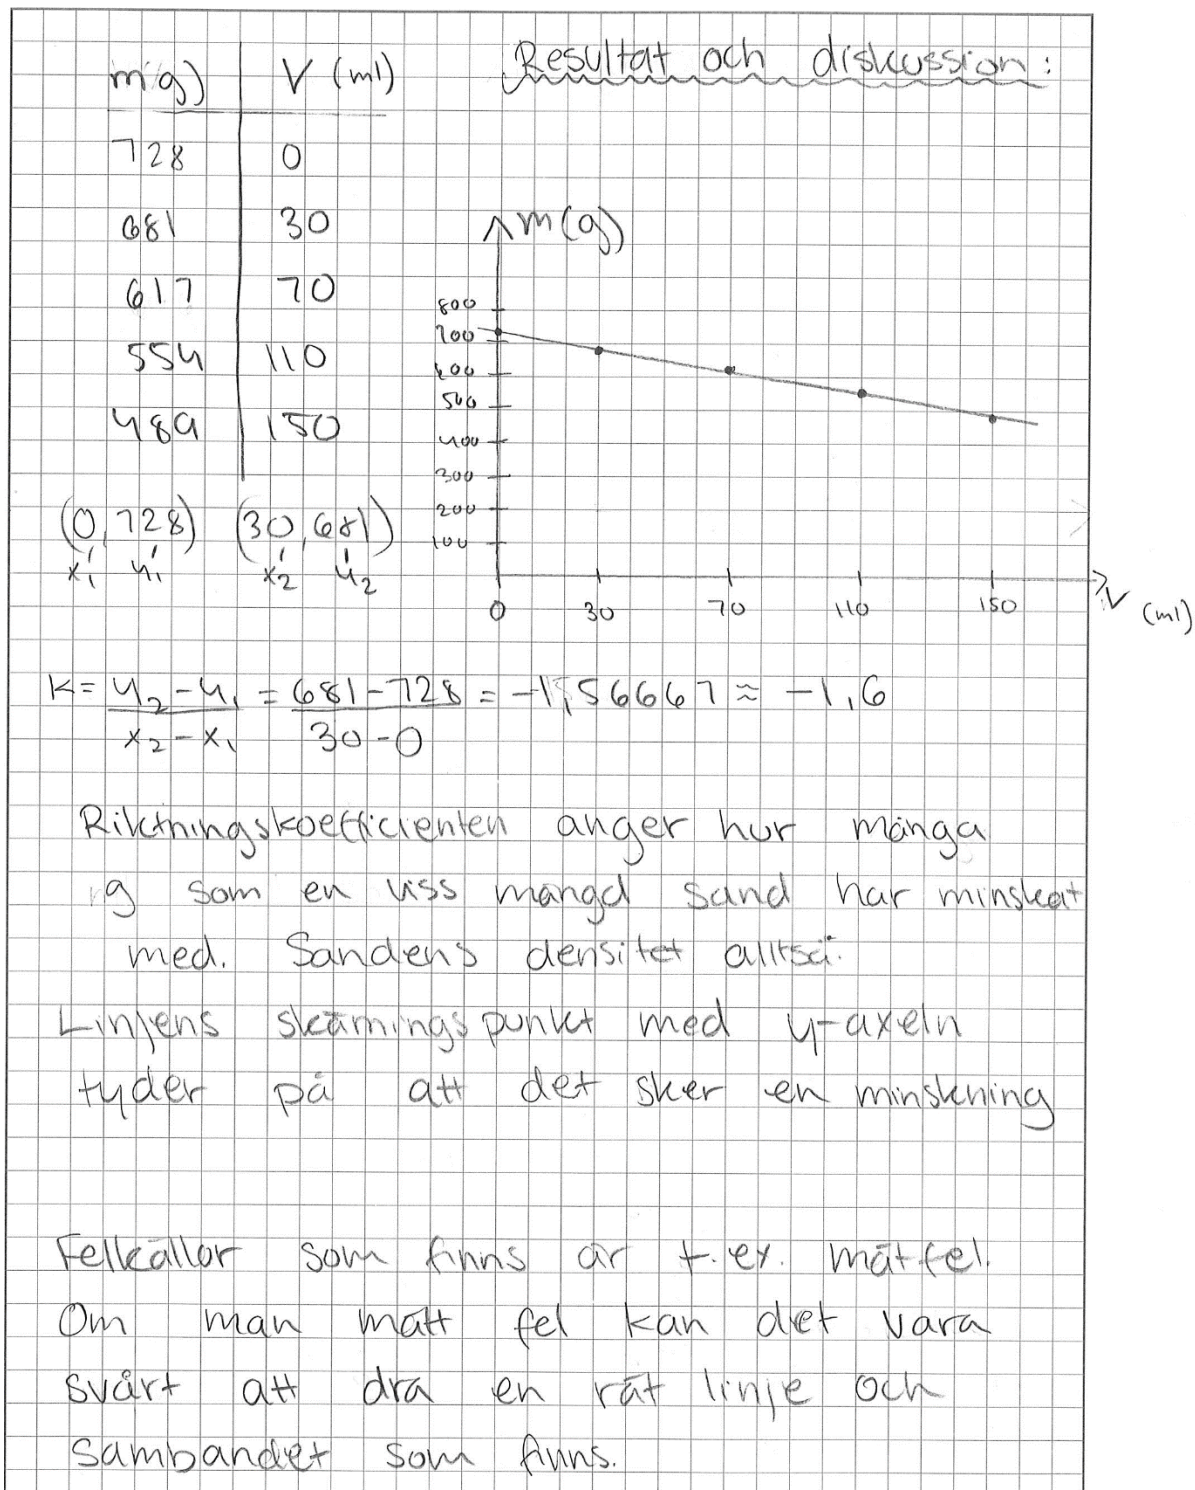 Resultat och diskussion:
m(g) V (ml)
728 0
681 30
617 70
554 110
489 150
m(g)
800
700
600
500
400
300
200
100
0 30 70 110 150
V (ml)
(0,728) (30,681)
x₁ y₁ x₂ y₂
K = y₂-y₁ / x₂-x₁ = 681-728 / 30-0 = -1,56667 ≈ -1,6
Riktningskoefficienten anger hur många
g som en viss mängd sand har minskat
med. Sandens densitet alltså.
Linjens skärningspunkt med y-axeln
tyder på att det sker en minskning
Felkällor som finns är t.ex. mätfel.
Om man mätt fel kan det vara
svårt att dra en rät linje och
sambandet som finns.